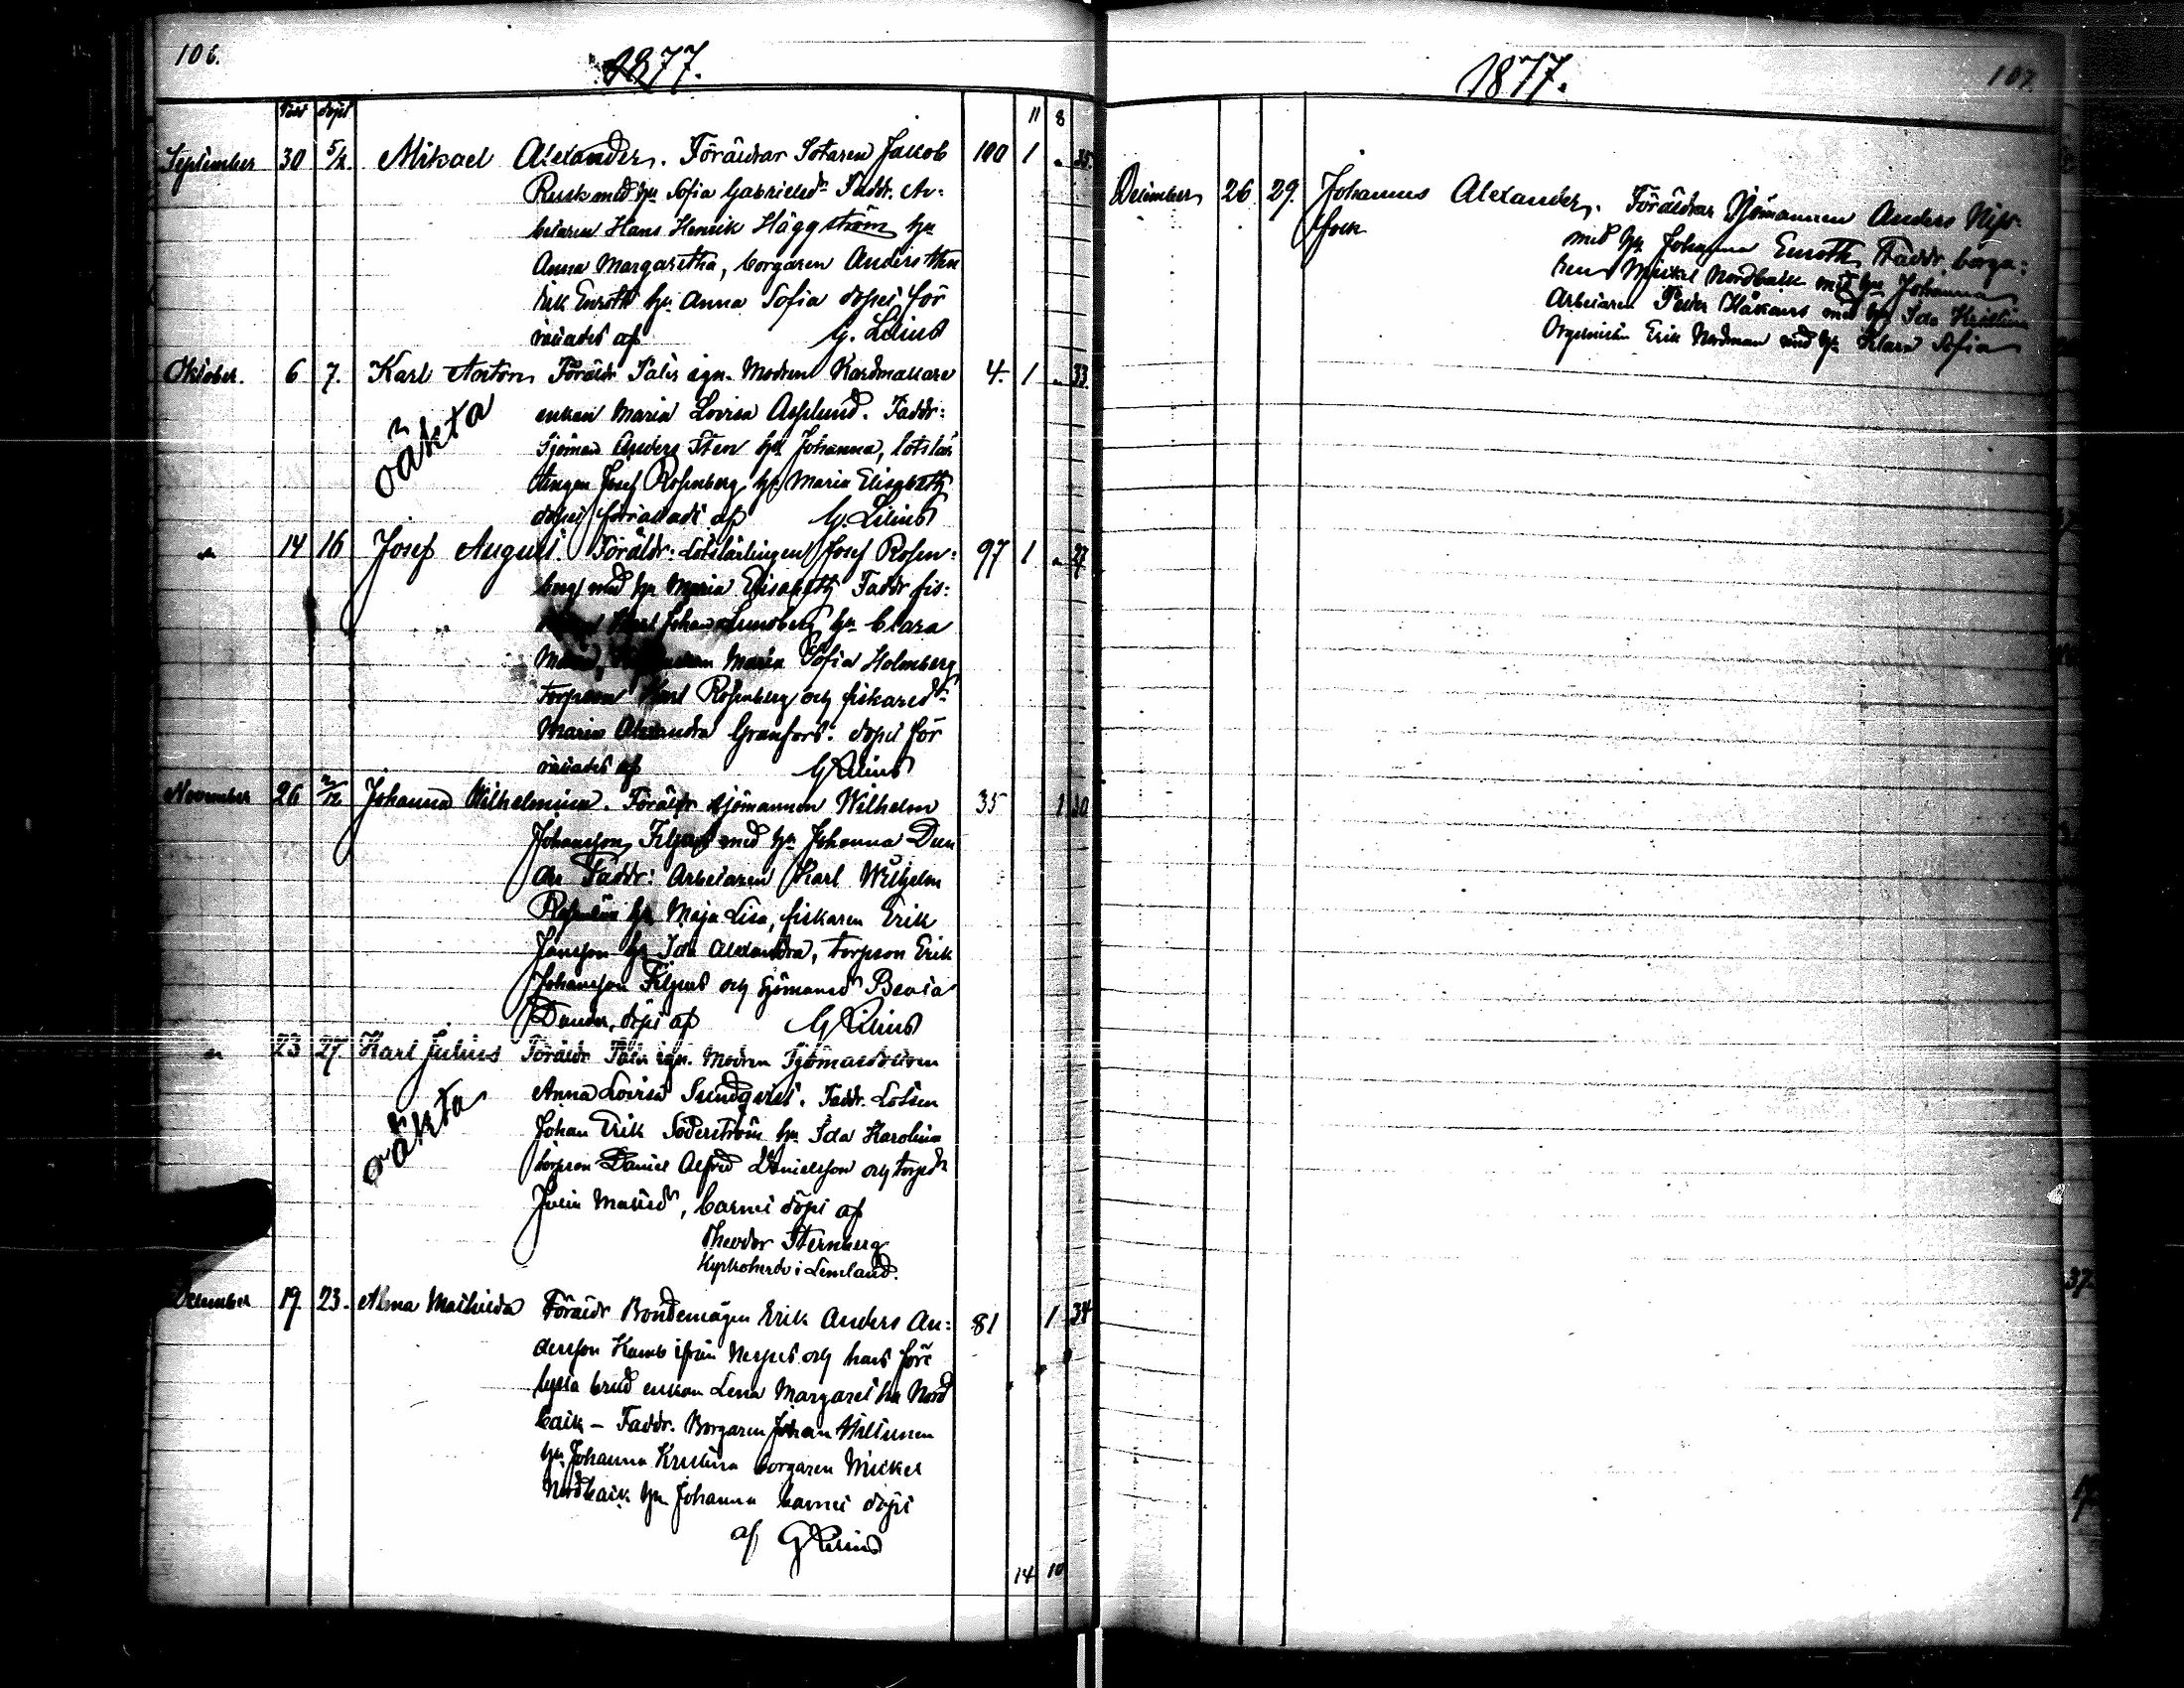 106.
1877.
Föd döpt 11 8
September 30 5/12. Mikael Alexander. Föräldrar Sotaren Jakob 100 1 " 35.
Rusk med h:u Sofia Gabrielsdr Faddr. Ar:
betaren Hans Henrik Häggström h:u
Anna Margaretha, borgaren Anders Hen
rik Enroth h:u Anna Sofia dopet för
rättades af G. Lilius
Oktober. 6 7. Karl Anton Föräldr Fader ogn. Modren Kardmakare 4. 1 " 33.
oäkta
enkan Maria Lovisa Asplund. Faddr:
Sjöman Anders Sten h:u Johanna, lotslär
lingen Josef Rosenberg h:u Maria Elisabeth
dopet förrättadt af G. Lilius
" 14 16 Josef August. Föräldr: Lotslärlingen Josef Rosen: 97 1 " 27.
berg med h:u Maria Elisabeth Faddr fis:
Karl Johan h:u Clara
Maria Sofia Holmberg,
torpson Karl Rosenberg och fiskaredr
Maria Alexandra Granfors. dopet för
rättades af G Lilius
November 26 2/12 Johanna Wilhelmina. Föräldr sjömannen Wilhelm 35 1 30
Johansson med h:u Johanna Dun
der Faddr: Arbetaren Karl Wilhelm
h:u Maja Lisa, fiskaren Erik
Jansson h:u Ida Alexandra, torpson Erik
Johansson och sjömansdr Beata
Dunder, döpt af G Lilius
" 23 27. Karl Julius Föräldr Fader ogn. Modren Sjömansdottren
oäkta
Anna Lovisa Sundqvist. Faddr. Lotsen
Johan Erik Söderström h:u Ida Karolina
torpson Daniel Alfred Danielsson och torpdr
Julia Matsdr, barnet döpt af
Theodor Sternberg
Kyrkoherde i Lemland.
December 19. 23. Alma Mathilda Föräldr Bondemågen Erik Anders An: 81 1 34
dersson Kamb ifrån Nerpes och hans före
lysta brud enkan Lena Margaretha Nord
back – Faddr. Borgaren Johan
h:u Johanna Kristina borgaren Mickel
Nordback h:u Johanna barnet döpt
af G Lilius
14 10
1877.
107.
December 26 29. Johannes Alexander. Föräldrar Sjömannen Anders
med h:u Johanna Enroth Faddr. borga:
ren Mickel Nordback med h:u Johanna
Arbetaren Peter Håkans med h:u Ida Kristina
Orgelnisten Erik Nordman med h:u Klara Sofia